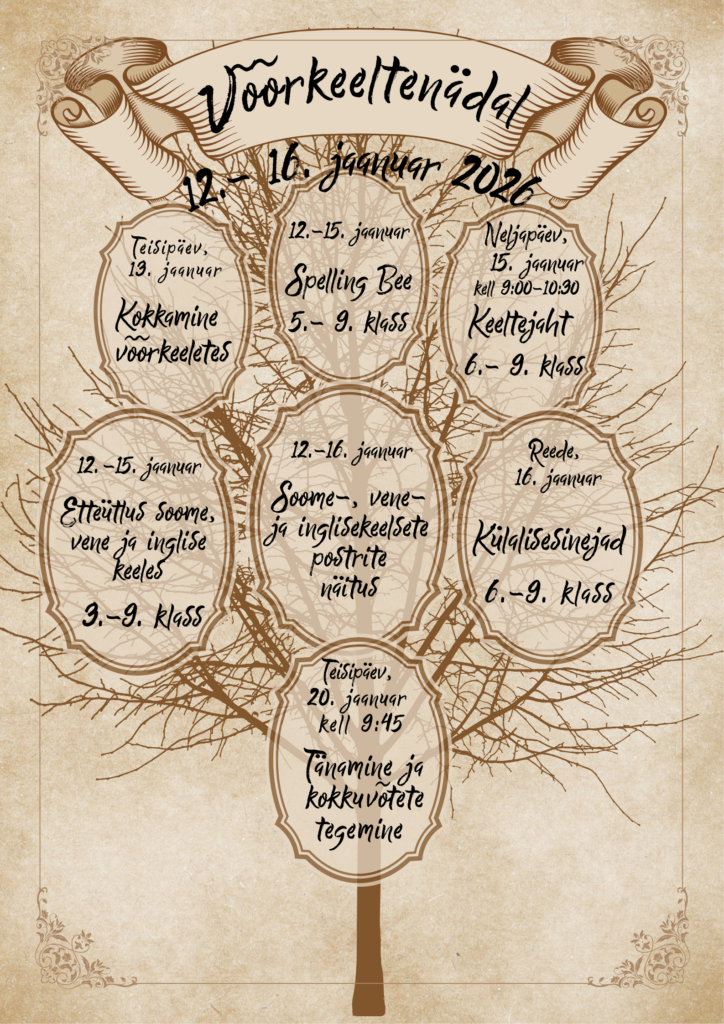 Võõrkeeltenädal
12.- 16. jaanuar 2026
Teisipäev,
13. jaanuar
Kokkamine
võõrkeeletes
12.-15. jaanuar
Spelling Bee
5.- 9. klass
Neljapäev,
15. jaanuar
kell 9:00-10:30
Keeltejaht
6.- 9. klass
12.-15. jaanuar
Etteütlus soome,
vene ja inglise
keeles
3.-9. klass
12.-16. jaanuar
Soome-, vene-
ja inglisekeelsete
postrite
näitus
Reede,
16. jaanuar
Külalisesinejad
6.-9. klass
Teisipäev,
20. jaanuar
kell 9:45
Tänamine ja
kokkuvõtete
tegemine